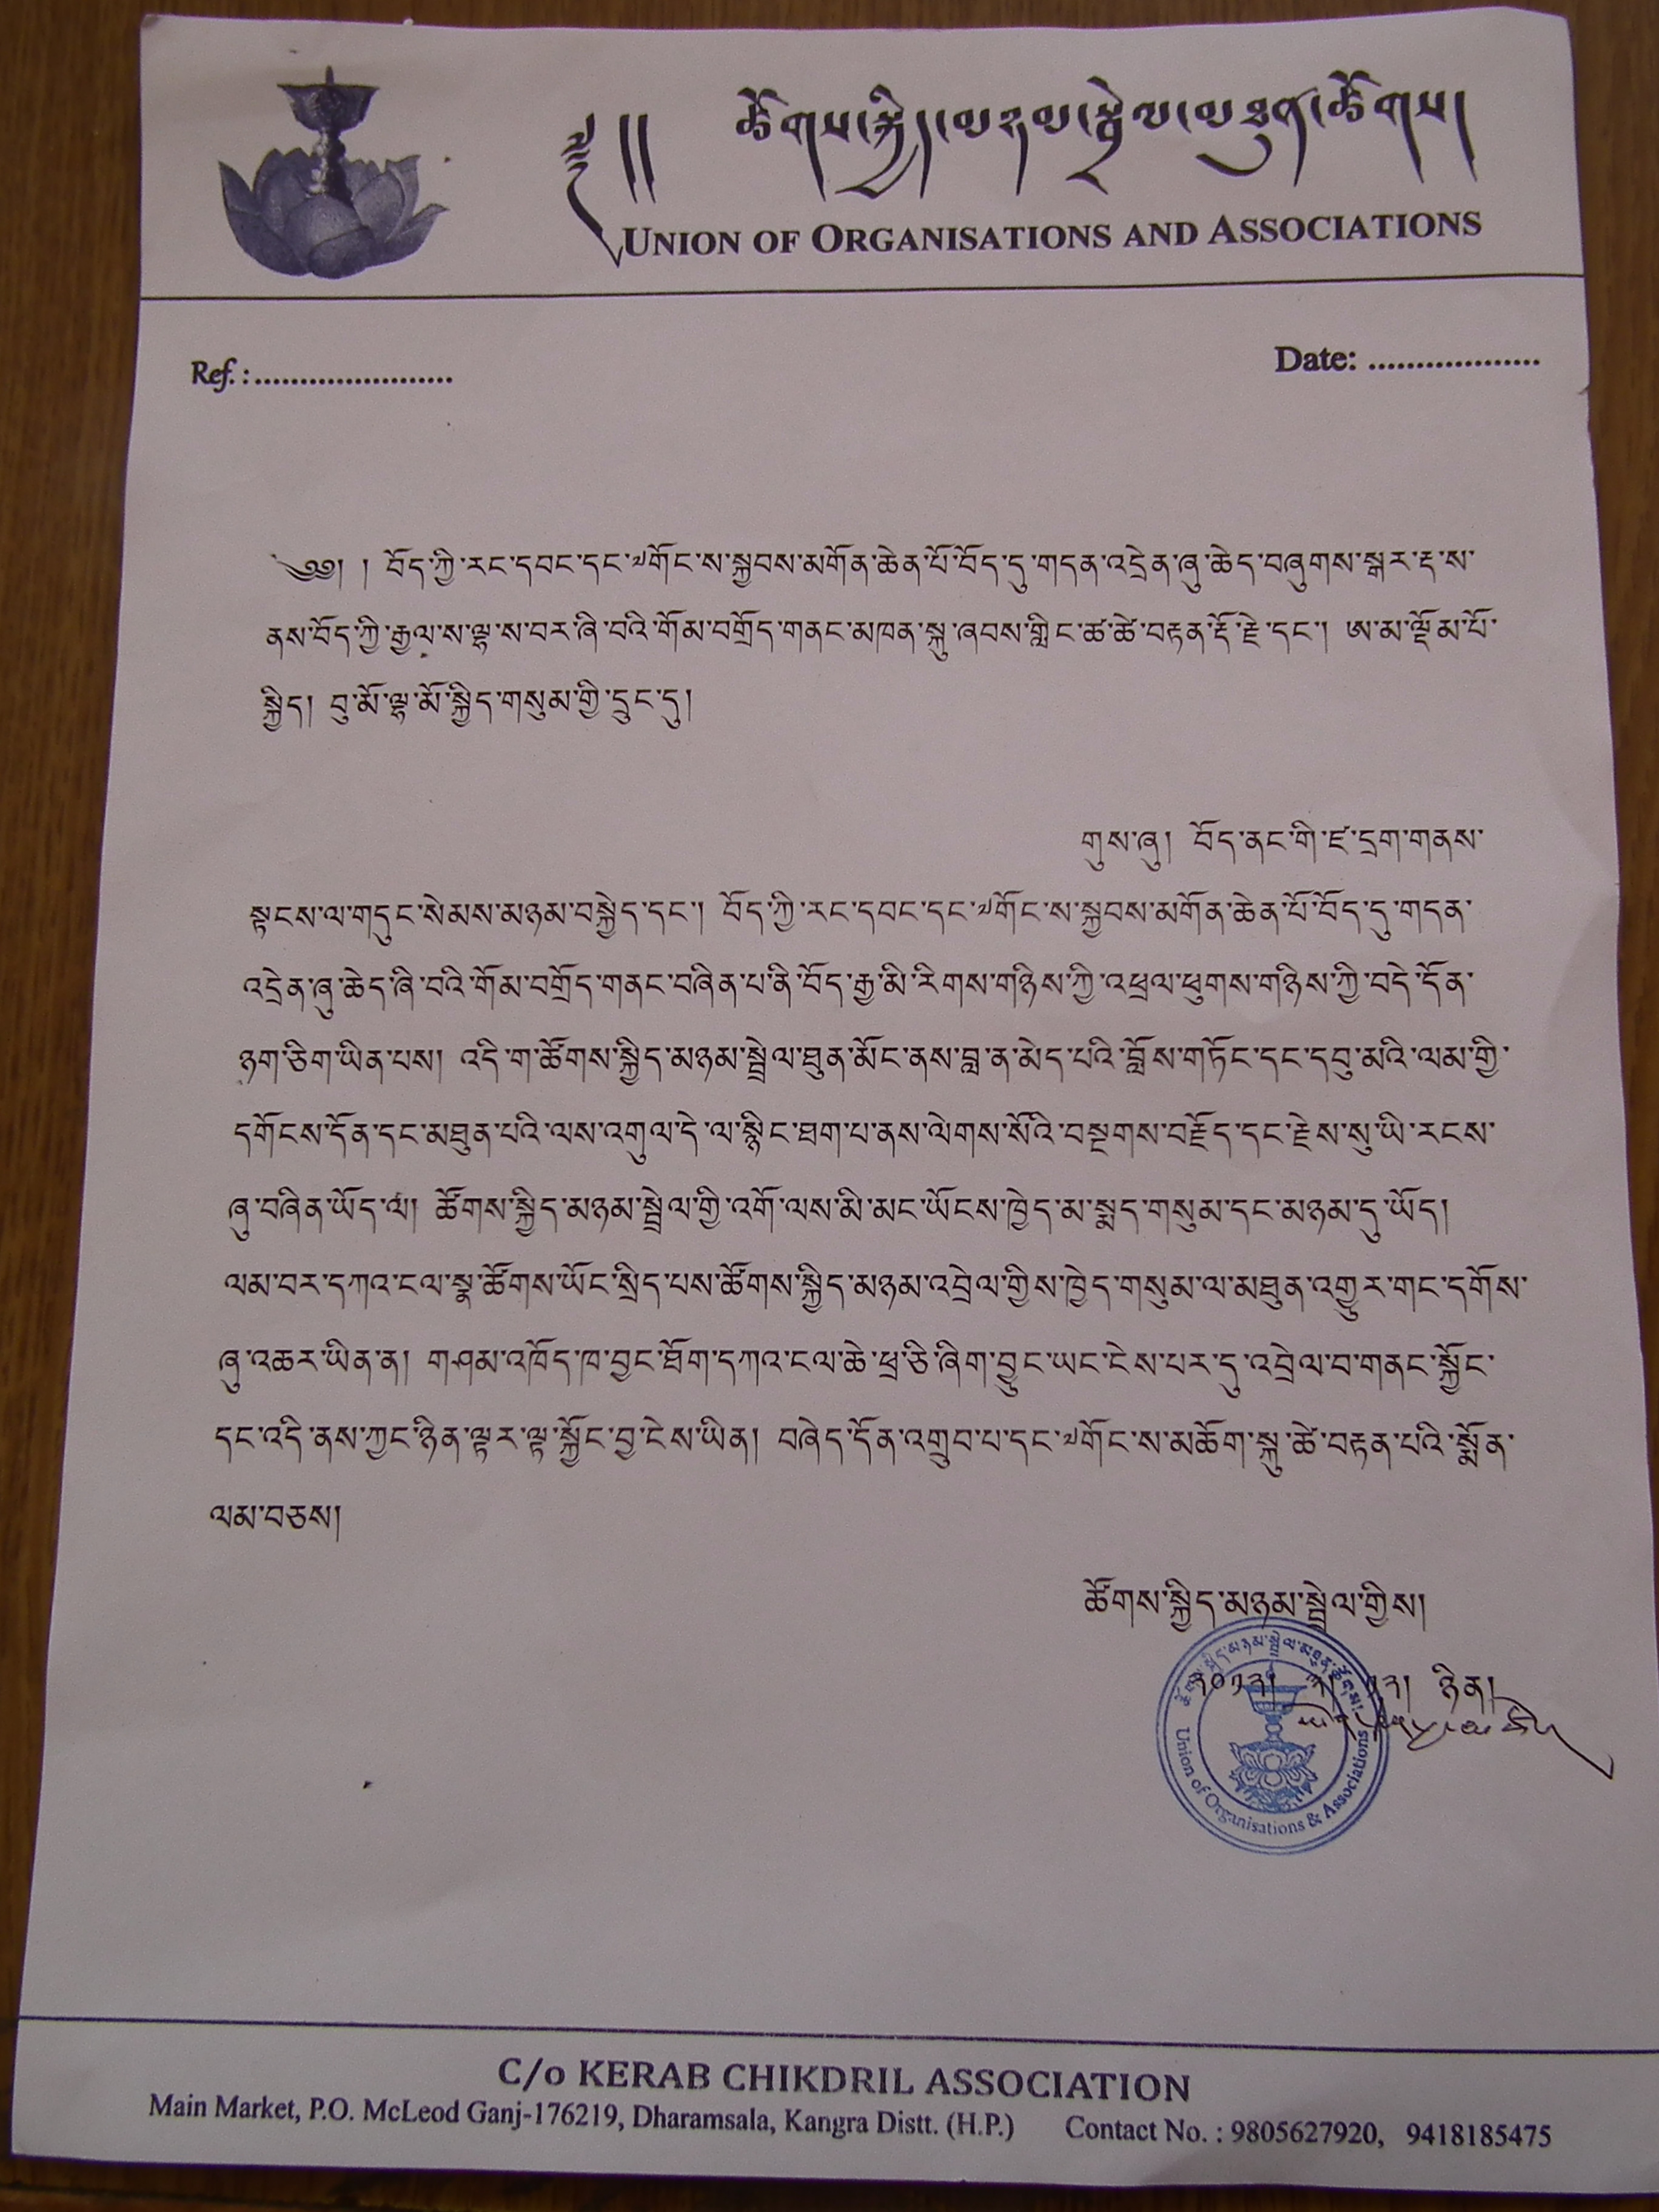 ༄།། ཚོགས་སྐྱིད་མཉམ་སྦྲེལ་མཐུན་ཚོགས།
UNION OF ORGANISATIONS AND ASSOCIATIONS
Ref. :......................
Date: ...................
༄༅། ། བོད་ཀྱི་རང་དབང་དང་༧གོང་ས་སྐྱབས་མགོན་ཆེན་པོ་བོད་དུ་གདན་འདྲེན་ཞུ་ཆེད་བཞུགས་སྒར་རྡ་ས་
ནས་བོད་ཀྱི་རྒྱལ་ས་ལྷ་ས་བར་ཞི་བའི་གོམ་བགྲོད་གནང་མཁན་སྐུ་ཞབས་གླིང་ཚ་ཚེ་བརྟན་རྡོ་རྗེ་དང་། ཨ་མ་ལྡོམ་པོ་
སྐྱིད། བུ་མོ་ལྷ་མོ་སྐྱིད་གསུམ་གྱི་དྲུང་དུ།
གུས་ཞུ། བོད་ནང་གི་ཛ་དྲག་གནས་
སྟངས་ལ་གདུང་སེམས་མཉམ་བསྐྱེད་དང་། བོད་ཀྱི་རང་དབང་དང་༧གོང་ས་སྐྱབས་མགོན་ཆེན་པོ་བོད་དུ་གདན་
འདྲེན་ཞུ་ཆེད་ཞི་བའི་གོམ་བགྲོད་གནང་བཞིན་པ་ནི་བོད་རྒྱ་མི་རིགས་གཉིས་ཀྱི་འཕྲལ་ཕུགས་གཉིས་ཀྱི་བདེ་དོན་
ཉག་ཅིག་ཡིན་པས། འདི་ག་ཚོགས་སྐྱིད་མཉམ་སྦྲེལ་ཐུན་མོང་ནས་བླ་ན་མེད་པའི་བློས་གཏོང་དང་དབུ་མའི་ལམ་གྱི་
དགོངས་དོན་དང་མཐུན་པའི་ལས་འགུལ་དེ་ལ་སྙིང་ཐག་པ་ནས་ལེགས་སོའི་བསྔགས་བརྗོད་དང་རྗེས་སུ་ཡི་རངས་
ཞུ་བཞིན་ཡོད་ལ། ཚོགས་སྐྱིད་མཉམ་སྦྲེལ་གྱི་འགོ་ལས་མི་མང་ཡོངས་ཁྱེད་མ་སྨད་གསུམ་དང་མཉམ་དུ་ཡོད།
ལམ་བར་དཀའ་ངལ་སྣ་ཚོགས་ཡོང་སྲིད་པས་ཚོགས་སྐྱིད་མཉམ་འབྲེལ་གྱིས་ཁྱེད་གསུམ་ལ་མཐུན་འགྱུར་གང་དགོས་
ཞུ་འཆར་ཡིན་ན། གཤམ་འཁོད་ཁ་བྱང་ཐོག་དཀའ་ངལ་ཆེ་ཕྲ་ཅི་ཞིག་བྱུང་ཡང་ངེས་པར་དུ་འབྲེལ་བ་གནང་སྐྱོང་
དང་འདི་ནས་ཀྱང་ཉིན་ལྟར་ལྟ་སྐྱོང་བྱ་ངེས་ཡིན། བཞེད་དོན་འགྲུབ་པ་དང་༧གོང་ས་མཆོག་སྐུ་ཚེ་བརྟན་པའི་སྨོན་
ལམ་བཅས།
ཚོགས་སྐྱིད་མཉམ་སྦྲེལ་གྱིས།
༢༠༡༢། ༡༢། ཉིན།
Union of Organisations & Associations
C/o KERAB CHIKDRIL ASSOCIATION
Main Market, P.O. McLeod Ganj-176219, Dharamsala, Kangra Distt. (H.P.) Contact No. : 9805627920, 9418185475